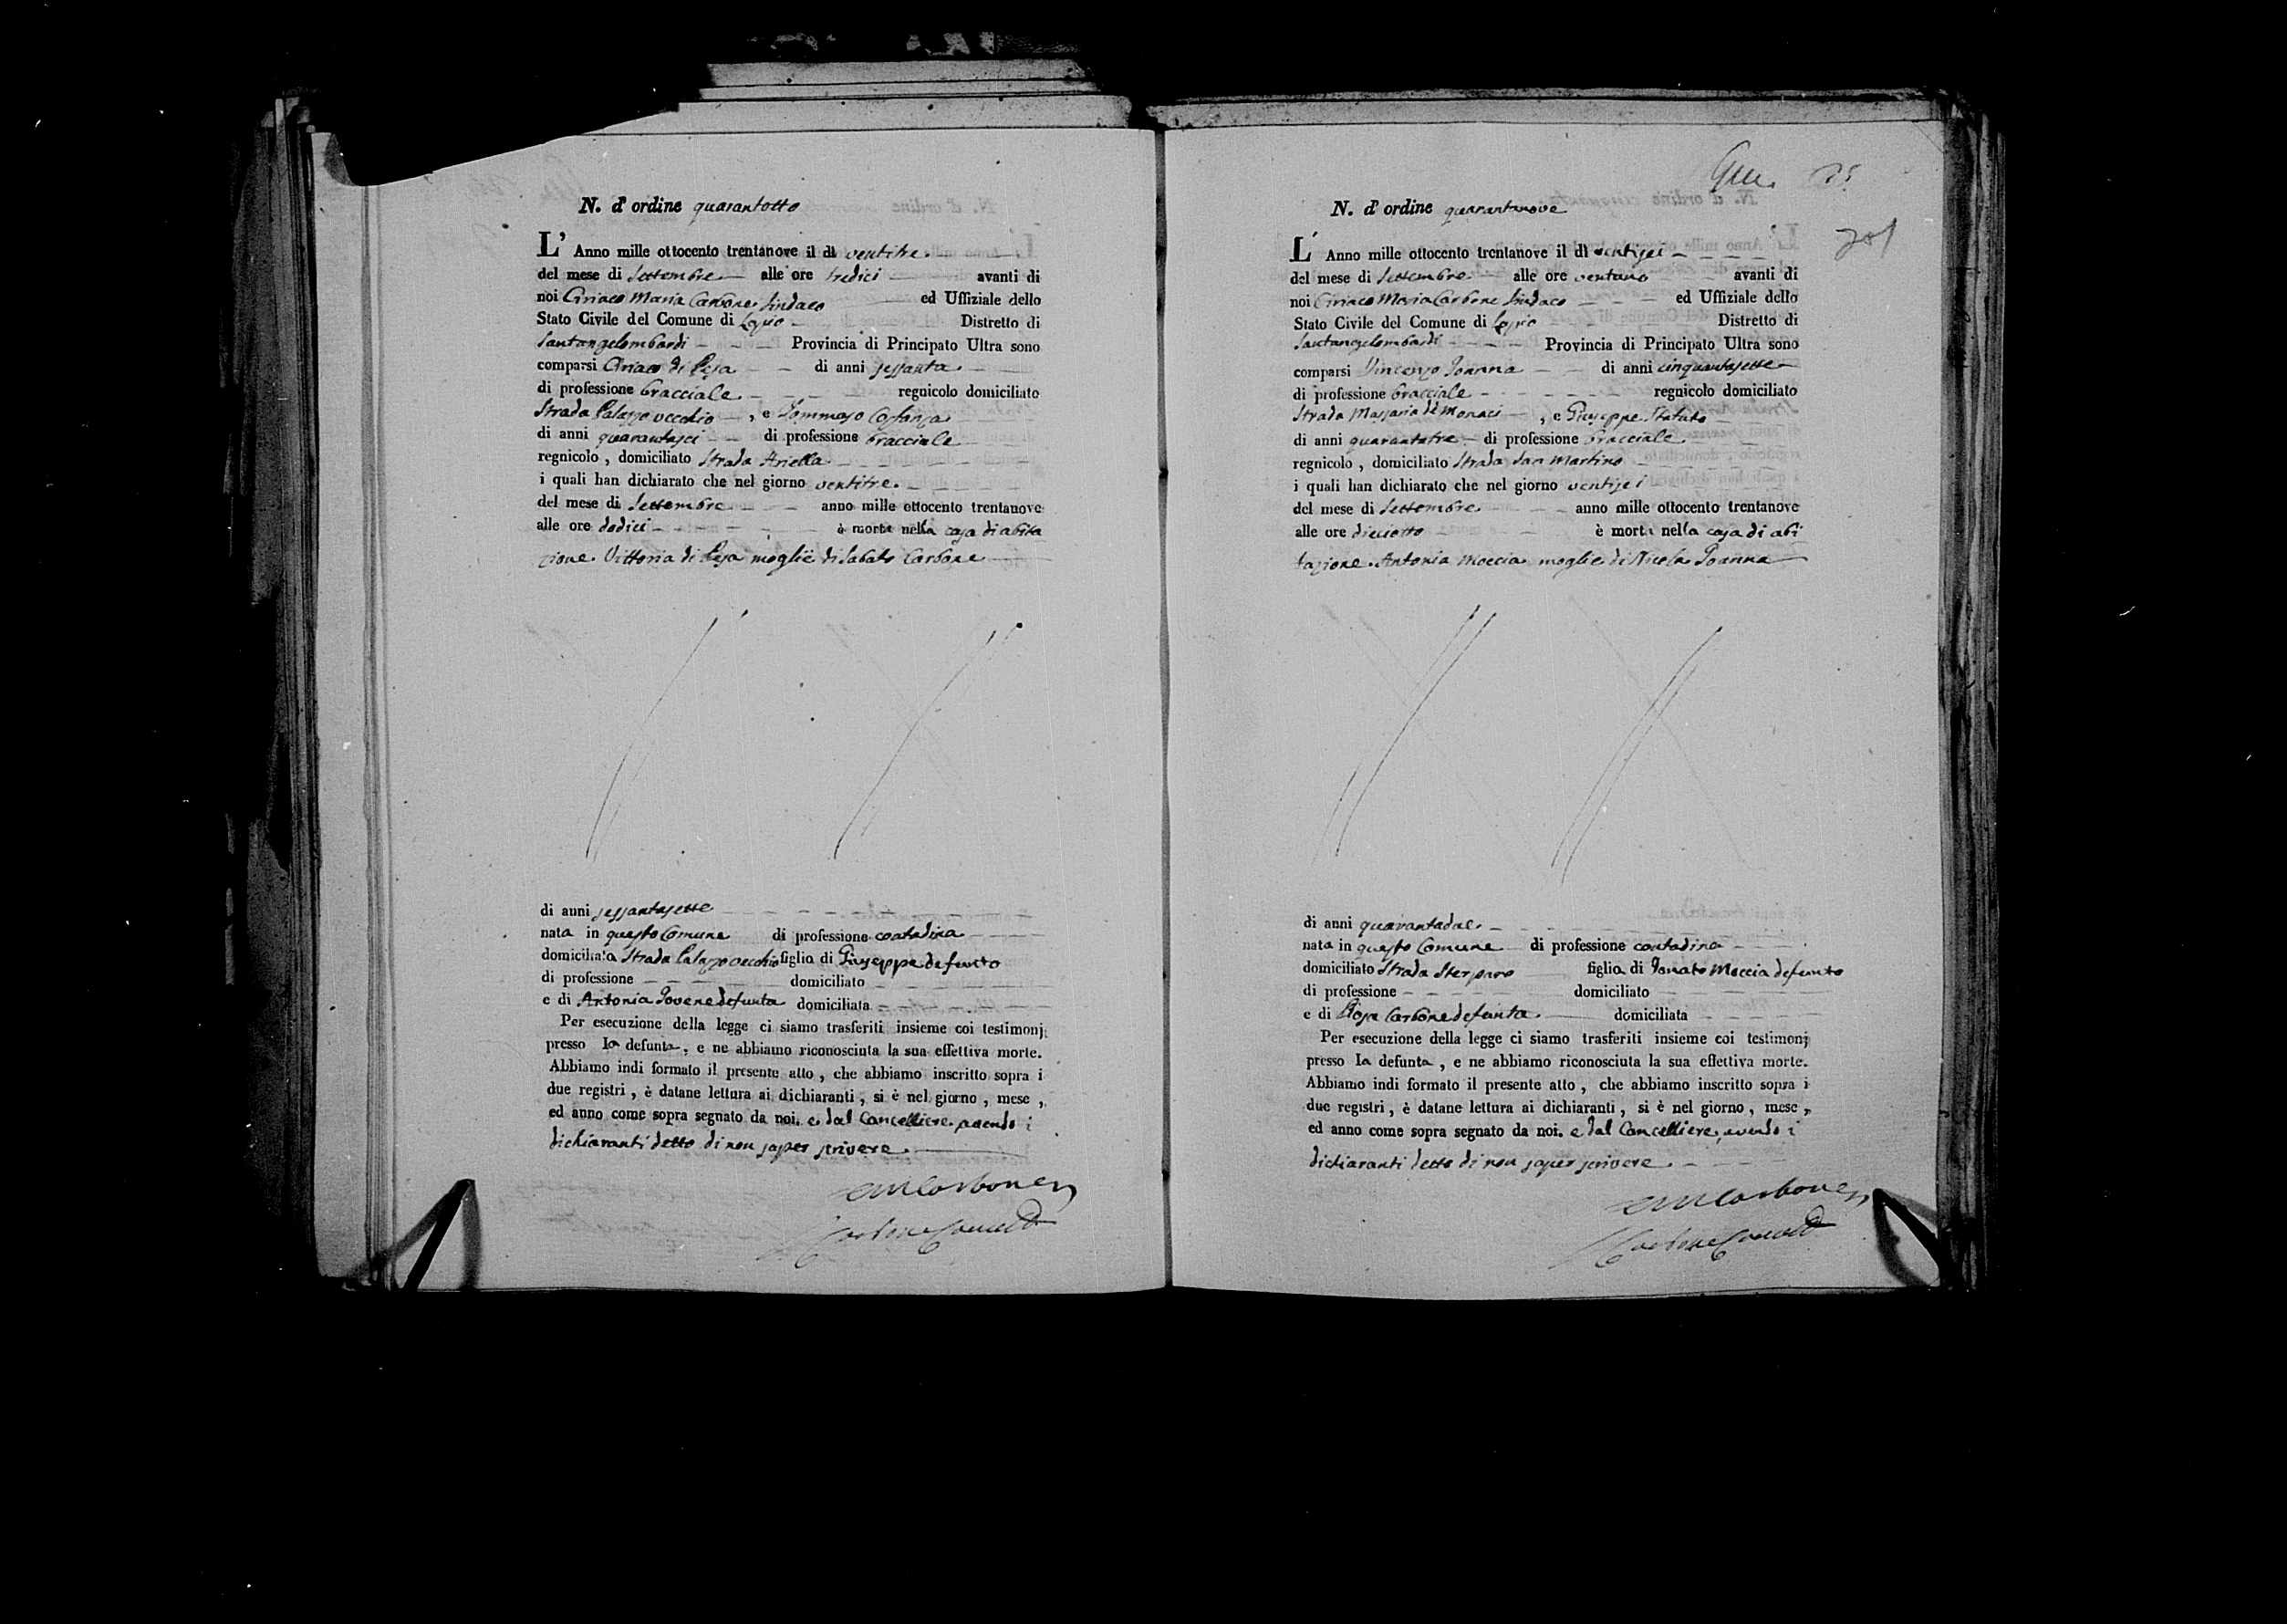 N. d'ordine quarantotto
L'Anno mille ottocento trentanove il dì ventitre
del mese di Settembre alle ore tredici avanti di
noi Ciriaco Maria Carbone Sindaco ed Uffiziale dello
Stato Civile del Comune di Distretto di
Santangelombardi Provincia di Principato Ultra sono
comparsi Ciriaco di Pesa di anni sessanta
di professione bracciale regnicolo domiciliato
Strada Palazzo vecchio, e Tommaso Costanza
di anni quarantasei di professione bracciale
regnicolo, domiciliato Strada Ariella
i quali han dichiarato che nel giorno ventitre
del mese di Settembre anno mille ottocento trentanove
alle ore dodici è morta nella casa di abita
zione Vittoria di Pesa moglie di Sabato Carbone
di anni sessantasette
nata in questo Comune di professione contadina
domiciliata Strada Palazzo vecchio figlia di Giuseppe defunto
di professione domiciliato
e di Antonia Iovene defunta domiciliata
Per esecuzione della legge ci siamo trasferiti insieme coi testimonj
presso la defunta, e ne abbiamo riconosciuta la sua effettiva morte.
Abbiamo indi formato il presente atto, che abbiamo inscritto sopra i
due registri, è datane lettura ai dichiaranti, si è nel giorno, mese,
ed anno come sopra segnato da noi. e dal Cancelliere avendo i
dichiaranti detto di non saper scrivere.
CMCarbone
N. d'ordine quarantanove
L'Anno mille ottocento trentanove il dì ventisei
del mese di Settembre alle ore ventuno avanti di
noi Ciriaco Maria Carbone Sindaco ed Uffiziale dello
Stato Civile del Comune di Distretto di
Santangelombardi Provincia di Principato Ultra sono
comparsi Vincenzo Ioanna di anni cinquantasette
di professione bracciale regnicolo domiciliato
Strada Massaria de Monaci, e Giuseppe
di anni quarantatre di professione bracciale
regnicolo, domiciliato Strada San Martino
i quali han dichiarato che nel giorno ventisei
del mese di Settembre anno mille ottocento trentanove
alle ore dieciotto è morta nella casa di abi
tazione Antonia Moccia moglie di Nicola Ioanna
di anni quarantadue
nata in questo Comune di professione contadina
domiciliato Strada Sterparo figlia di Donato Moccia defunto
di professione domiciliato
e di Rosa Carbone defunta domiciliata
Per esecuzione della legge ci siamo trasferiti insieme coi testimonj
presso la defunta, e ne abbiamo riconosciuta la sua effettiva morte.
Abbiamo indi formato il presente atto, che abbiamo inscritto sopra i
due registri, è datane lettura ai dichiaranti, si è nel giorno, mese,
ed anno come sopra segnato da noi. e dal Cancelliere, avendo i
dichiaranti detto di non saper scrivere.
CMCarbone